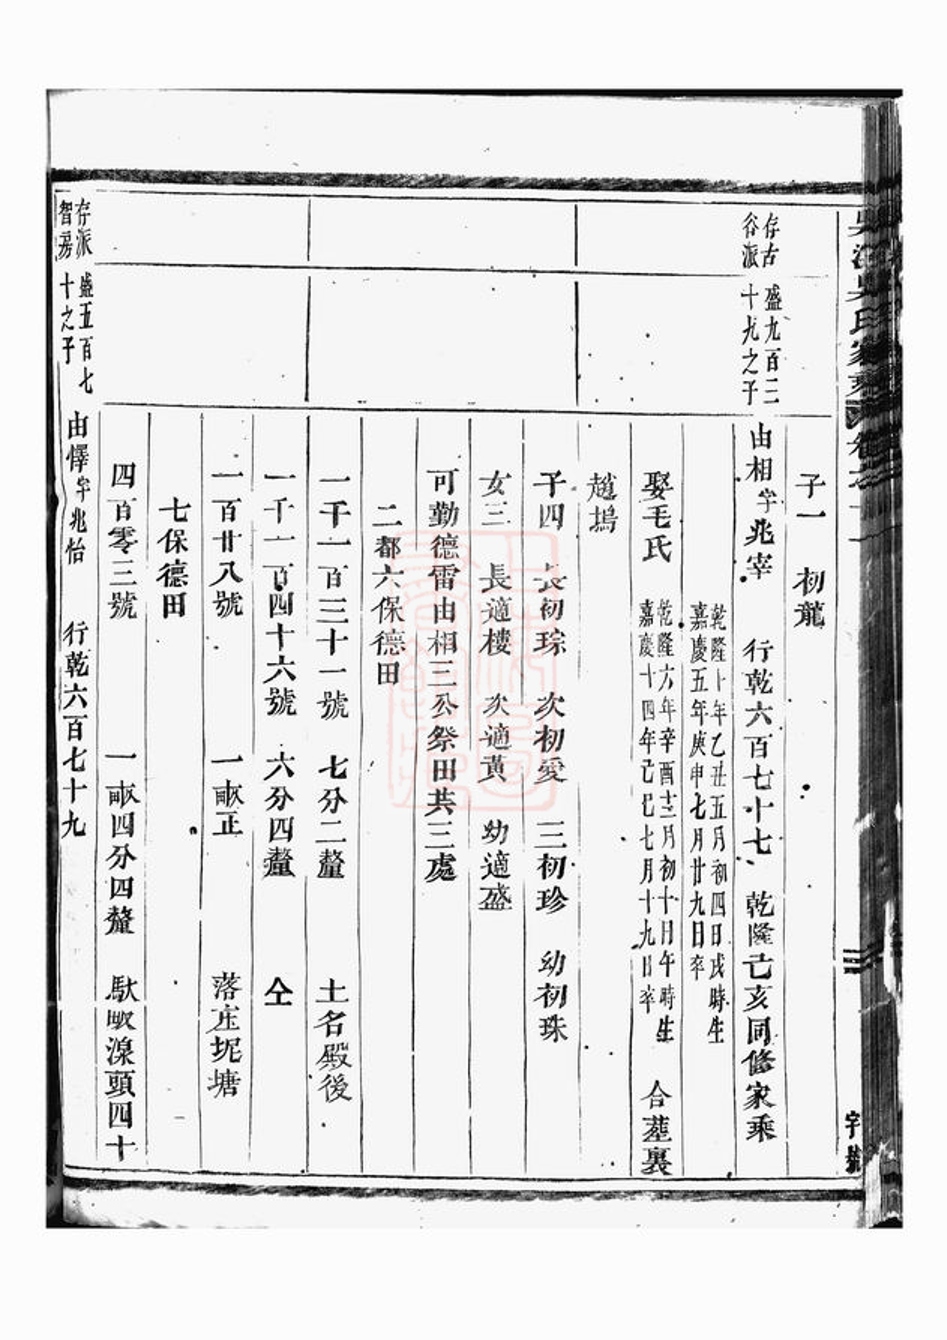 吳氏家乘
字號
子一　初龍
存古谷派
盛九百三十九之子
由相字兆宰　行乾六百七十七　乾隆己亥同修家乘
乾隆十年乙丑五月初四日戌時生
嘉慶五年庚申七月廿九日卒
娶毛氏
乾隆六年辛酉十二月初十日午時生
嘉慶十四年己巳七月十九日卒
合塟裏
趙塢
子四　長初琮　次初愛　三初珍　幼初珠
女三　長適樓　次適黃　幼適盛
可勤德雷由相三公祭田共三處
二都六保德田
一千一百三十一號　七分二釐　土名殿後
一千一百四十六號　六分四釐　仝
一百廿八號　一畝正　落庄坭塘
七保德田
四百零三號　一畝四分四釐　畝湶頭四十
存派智房
盛五百七十之子
由懌字兆怡　行乾六百七十九